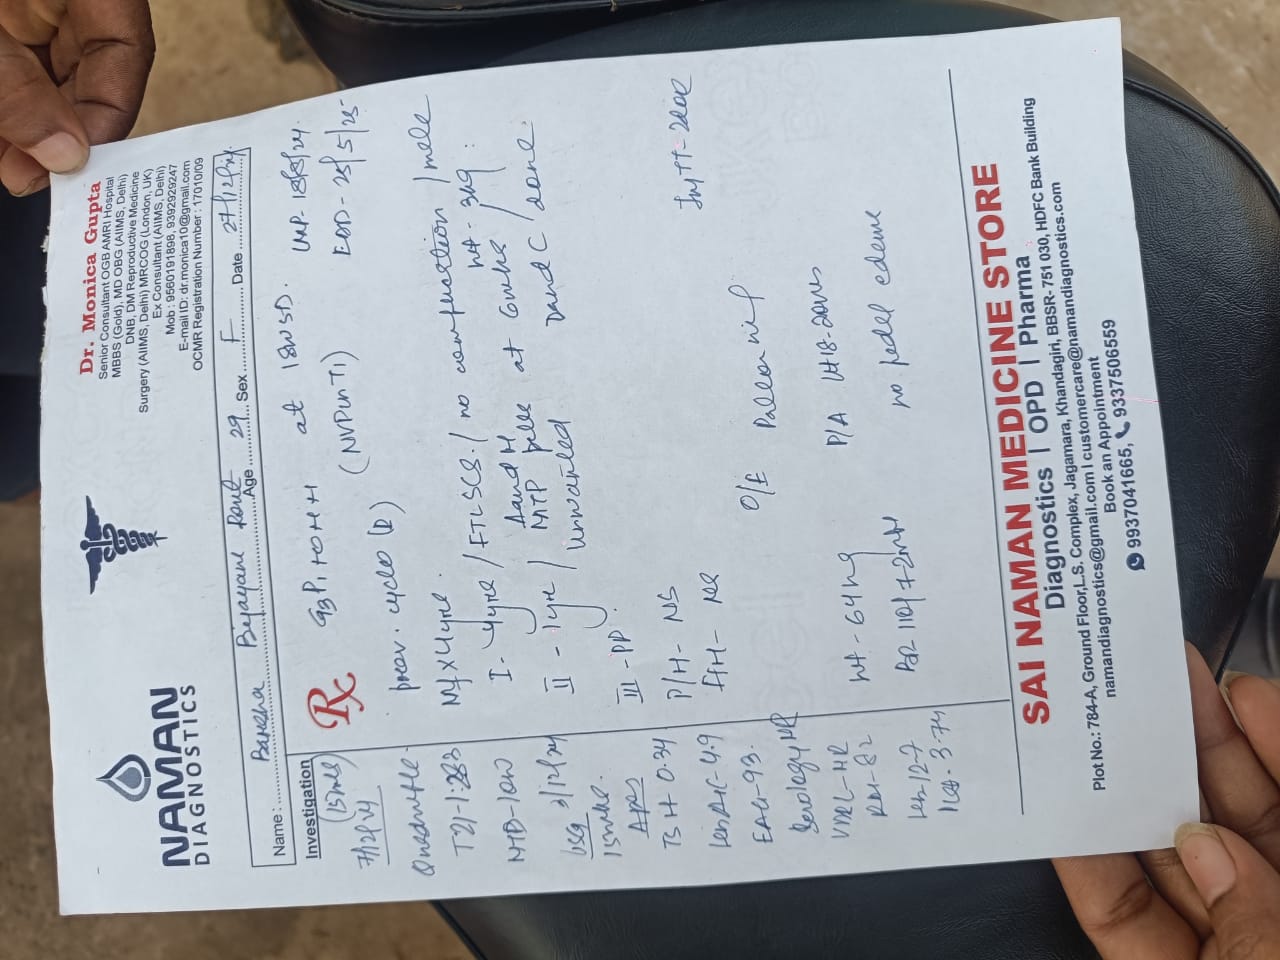 NAMAN
DIAGNOSTICS
Dr. Monica Gupta
Senior Consultant OGB AMRI Hospital
MBBS (Gold), MD OBG (AIIMS, Delhi)
DNB, DM Reproductive Medicine
Surgery (AIIMS, Delhi) MRCOG (London, UK)
Ex Consultant (AIIMS, Delhi)
Mob : 9560191898, 9392929247
E-mail ID: dr.monica10@gmail.com
OCMR Registration Number : 17010/09
Name: Barsha Bijayani Rout Age 29 Sex F Date 27/12/24
Investigation
(15wks)
7/12/24
Quadruple
T21-1:283
NTD-low
USG 2/12/24
15wks.
APLS
TSH 0.34
HbA1C-4.9
Serology NR
VDRL-NR
Hb-12.7
3.74
Rx
G3P1+0+1+1 at 18w5D. LMP-18/8/24.
(NVPinT1) EDD-25/5/25
prev. cycle (R)
M/x4yrs.
I- 4yrs / FTLSCS. / no complication / male
wt-3kg.
II - 1yr / MTP pills at 6wks /
unwanted D and C done.
III -PP.
P/H- NS
F/H- NS
InjTT-2done
O/E Pallor nil
wt-64kg P/A Ut18-20wks
no pedal edema
SAI NAMAN MEDICINE STORE
Diagnostics | OPD | Pharma
Plot No.: 784-A, Ground Floor, L.S. Complex, Jagamara, Khandagiri, BBSR-751 030, HDFC Bank Building
namandiagnostics@gmail.com I customercare@namandiagnostics.com
Book an Appointment
9937041665, 9337506559